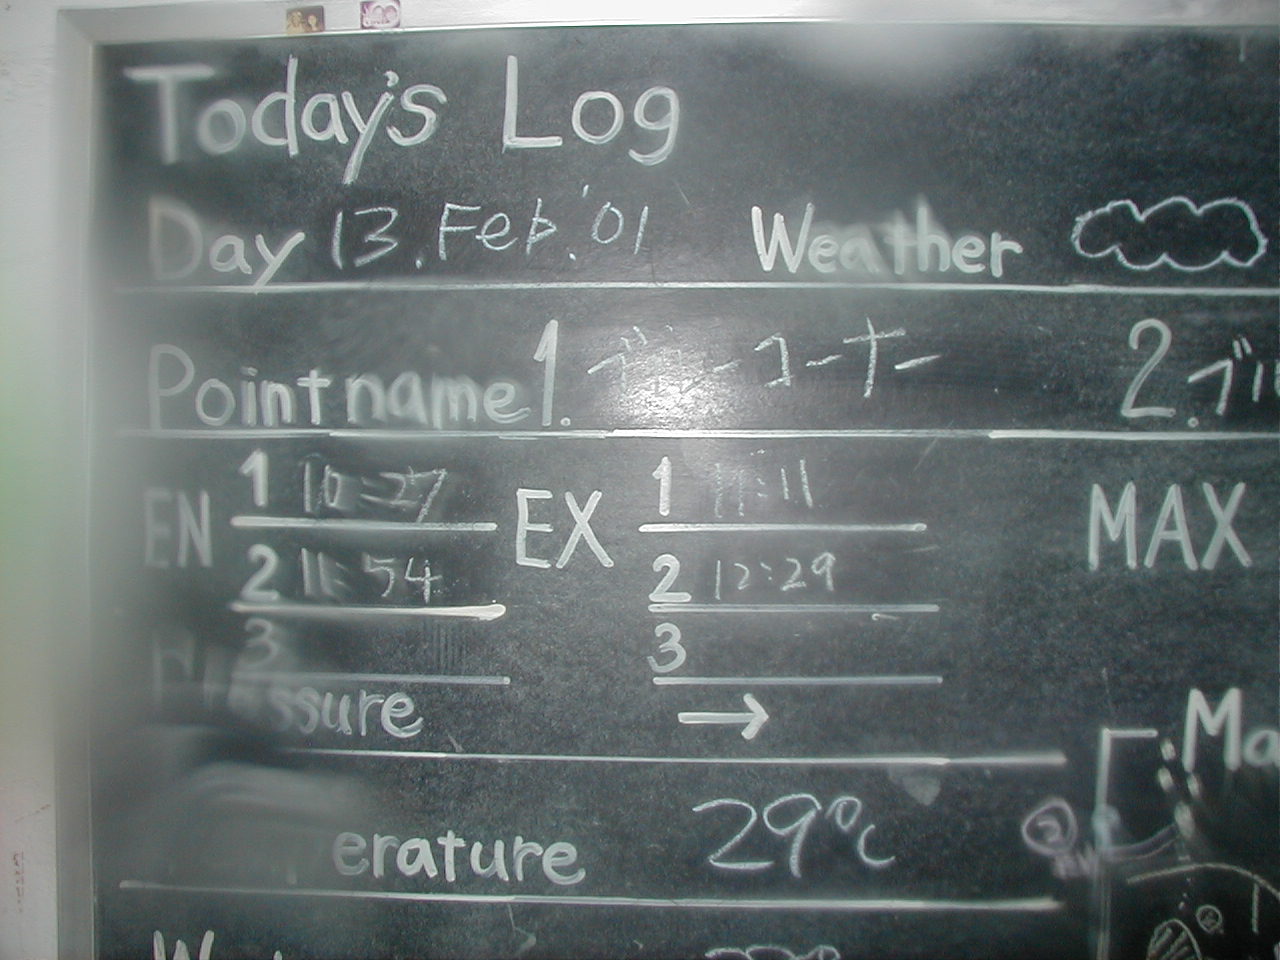 Today's Log
Day 13. Feb. '01 Weather
Point name 1. デューコーナー 2.
EN 1 10:27 EX 1 11:11 MAX
2 11:54 2 12:29
3 3
Pressure →
erature 29℃